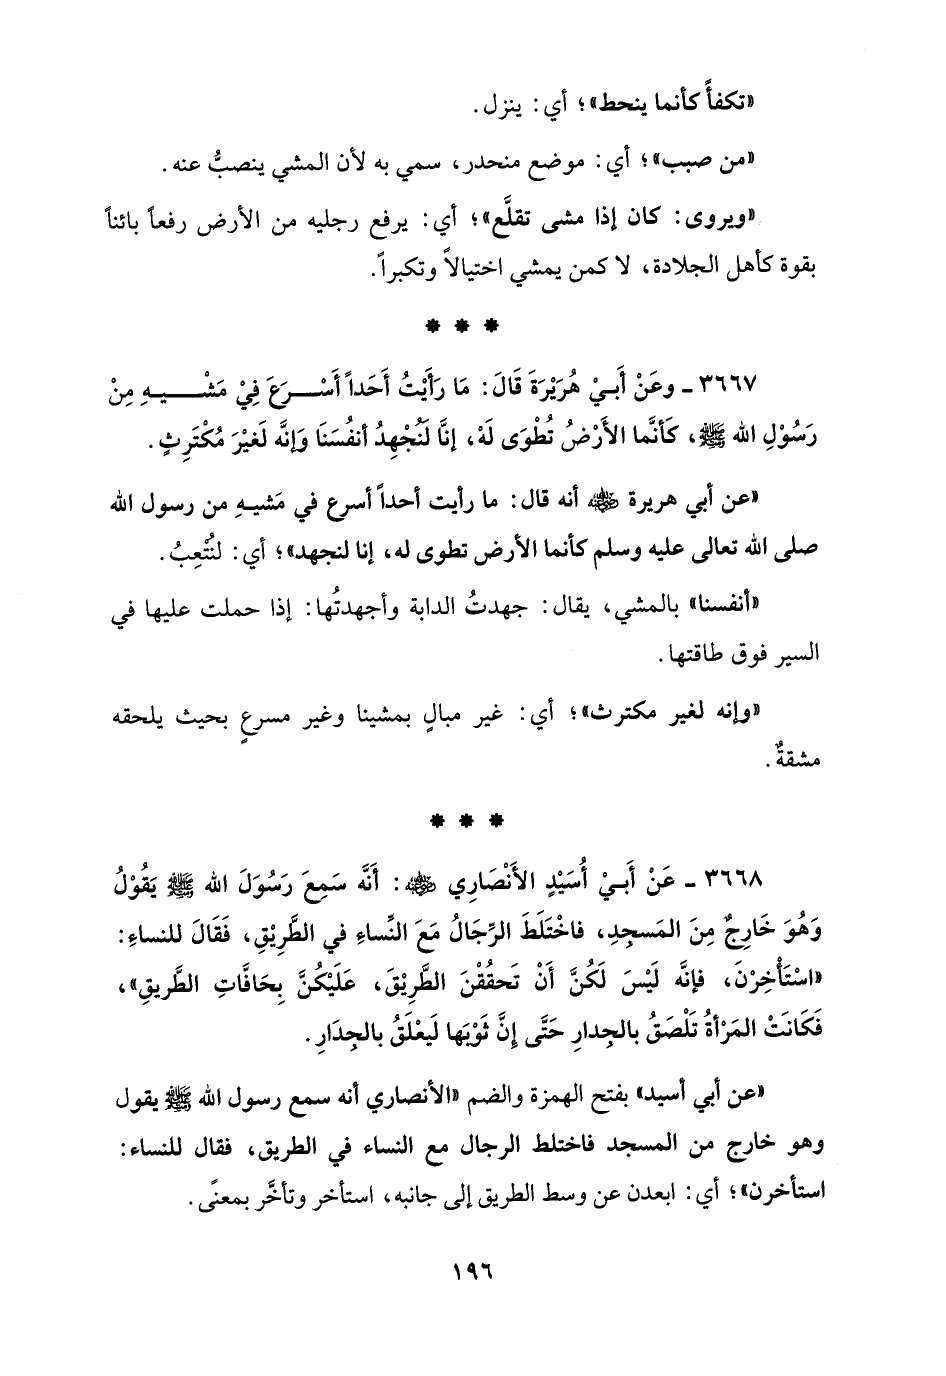 «تكفأً كأنما ينحط»؛ أي: ينزل.
«من صبب»؛ أي: موضع منحدر، سمي به لأن المشي ينصبُّ عنه.
«ويروى: كان إذا مشى تقلَّع»؛ أي: يرفع رجليه من الأرض رفعاً بائناً
بقوة كأهل الجلادة، لا كمن يمشي اختيالاً وتكبراً.
* * *
٣٦٦٧ ـ وعَنْ أَبيْ هُرَيْرَةَ قَالَ: مَا رَأَيْتُ أَحَداً أَسْـرَعَ فِيْ مَشْـيـهِ مِنْ
رَسُوْلِ الله ﷺ، كَأَنَّما الأَرْضُ تُطْوَى لَهْ، إنَّا لَنُجْهِدُ أنفُسَنَا وَإنَّه لَغَيْرَ مُكْتَرِثٍ.
«عن أبي هريرة ﵁ أنه قال: ما رأيت أحداً أسرع في مَشيـهِ من رسول الله
صلى الله تعالى عليه وسلم كأنما الأرض تطوى له، إنا لنجهد»؛ أي: لنُتْعِبُ.
«أنفسنا» بالمشي، يقال: جهدتُ الدابة وأجهدتُها: إذا حملت عليها في
السير فوق طاقتها.
«وإنه لغير مكترث»؛ أي: غير مبالٍ بمشينا وغير مسرعٍ بحيث يلحقه
مشقةٌ.
* * *
٣٦٦٨ ـ عَنْ أَبيْ أُسَيْدٍ الأَنْصَارِي ﵁: أنَّه سَمِعَ رَسُوَلَ الله ﷺ يَقُوْلُ
وَهُوَ خَارِجٌ مِنَ المَسجِدِ، فاخْتَلَطَ الرِّجَالُ مَعَ النِّساءِ في الطَّرِيْقِ، فَقَالَ للنساءِ:
«اسْتَأْخِرْنَ، فإنَّه لَيْسَ لَكُنَّ أَنْ تَحقُقْنَ الطَّرِيْقَ، عَلَيْكُنَّ بِحَافَّاتِ الطَّريقِ»،
فَكَانَتْ المَرْأةُ تَلْصَقُ بالجِدارِ حَتَّى إنَّ ثَوْبَها لَيعْلَقُ بالجِدَارِ.
«عن أبي أسيد» بفتح الهمزة والضم «الأنصاري أنه سمع رسول الله ﷺ يقول
وهو خارج من المسجد فاختلط الرجال مع النساء في الطريق، فقال للنساء:
استأخرن»؛ أي: ابعدن عن وسط الطريق إلى جانبه، استأخر وتأخَّر بمعنًى.
١٩٦